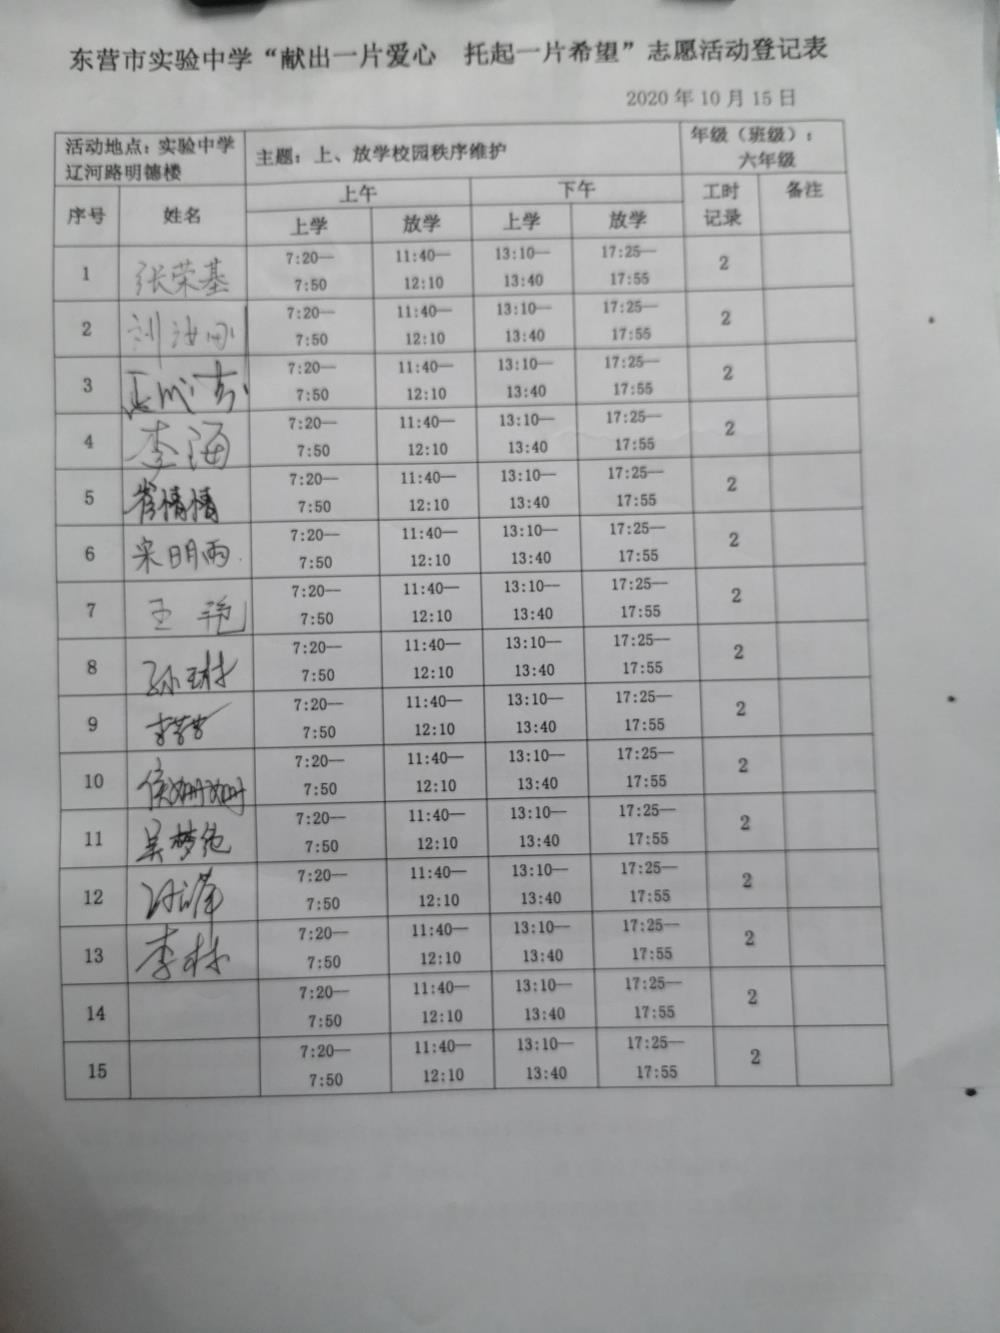 东营市实验中学“献出一片爱心 托起一片希望”志愿活动登记表
2020年10月15日
活动地点：实验中学 主题：上、放学校园秩序维护 年级（班级）：
辽河路明德楼 六年级
序号 姓名 上午 下午 工时 备注
上学 放学 上学 放学 记录
1 张荣基 7:20— 11:40— 13:10— 17:25— 2
7:50 12:10 13:40 17:55
2 7:20— 11:40— 13:10— 17:25— 2
7:50 12:10 13:40 17:55
3 7:20— 11:40— 13:10— 17:25— 2
7:50 12:10 13:40 17:55
4 李海 7:20— 11:40— 13:10— 17:25— 2
7:50 12:10 13:40 17:55
5 崔情情 7:20— 11:40— 13:10— 17:25— 2
7:50 12:10 13:40 17:55
6 宋明雨 7:20— 11:40— 13:10— 17:25— 2
7:50 12:10 13:40 17:55
7 王艳 7:20— 11:40— 13:10— 17:25— 2
7:50 12:10 13:40 17:55
8 孙琳 7:20— 11:40— 13:10— 17:25— 2
7:50 12:10 13:40 17:55
9 7:20— 11:40— 13:10— 17:25— 2
7:50 12:10 13:40 17:55
10 侯姗姗 7:20— 11:40— 13:10— 17:25— 2
7:50 12:10 13:40 17:55
11 7:20— 11:40— 13:10— 17:25— 2
7:50 12:10 13:40 17:55
12 7:20— 11:40— 13:10— 17:25— 2
7:50 12:10 13:40 17:55
13 李林 7:20— 11:40— 13:10— 17:25— 2
7:50 12:10 13:40 17:55
14 7:20— 11:40— 13:10— 17:25— 2
7:50 12:10 13:40 17:55
15 7:20— 11:40— 13:10— 17:25— 2
7:50 12:10 13:40 17:55